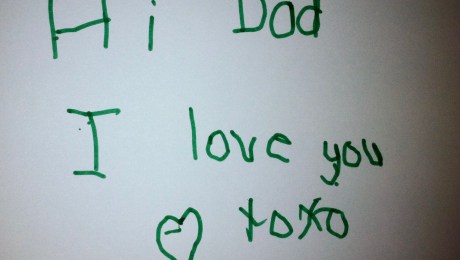 Hi Dad
I love you
xoxo